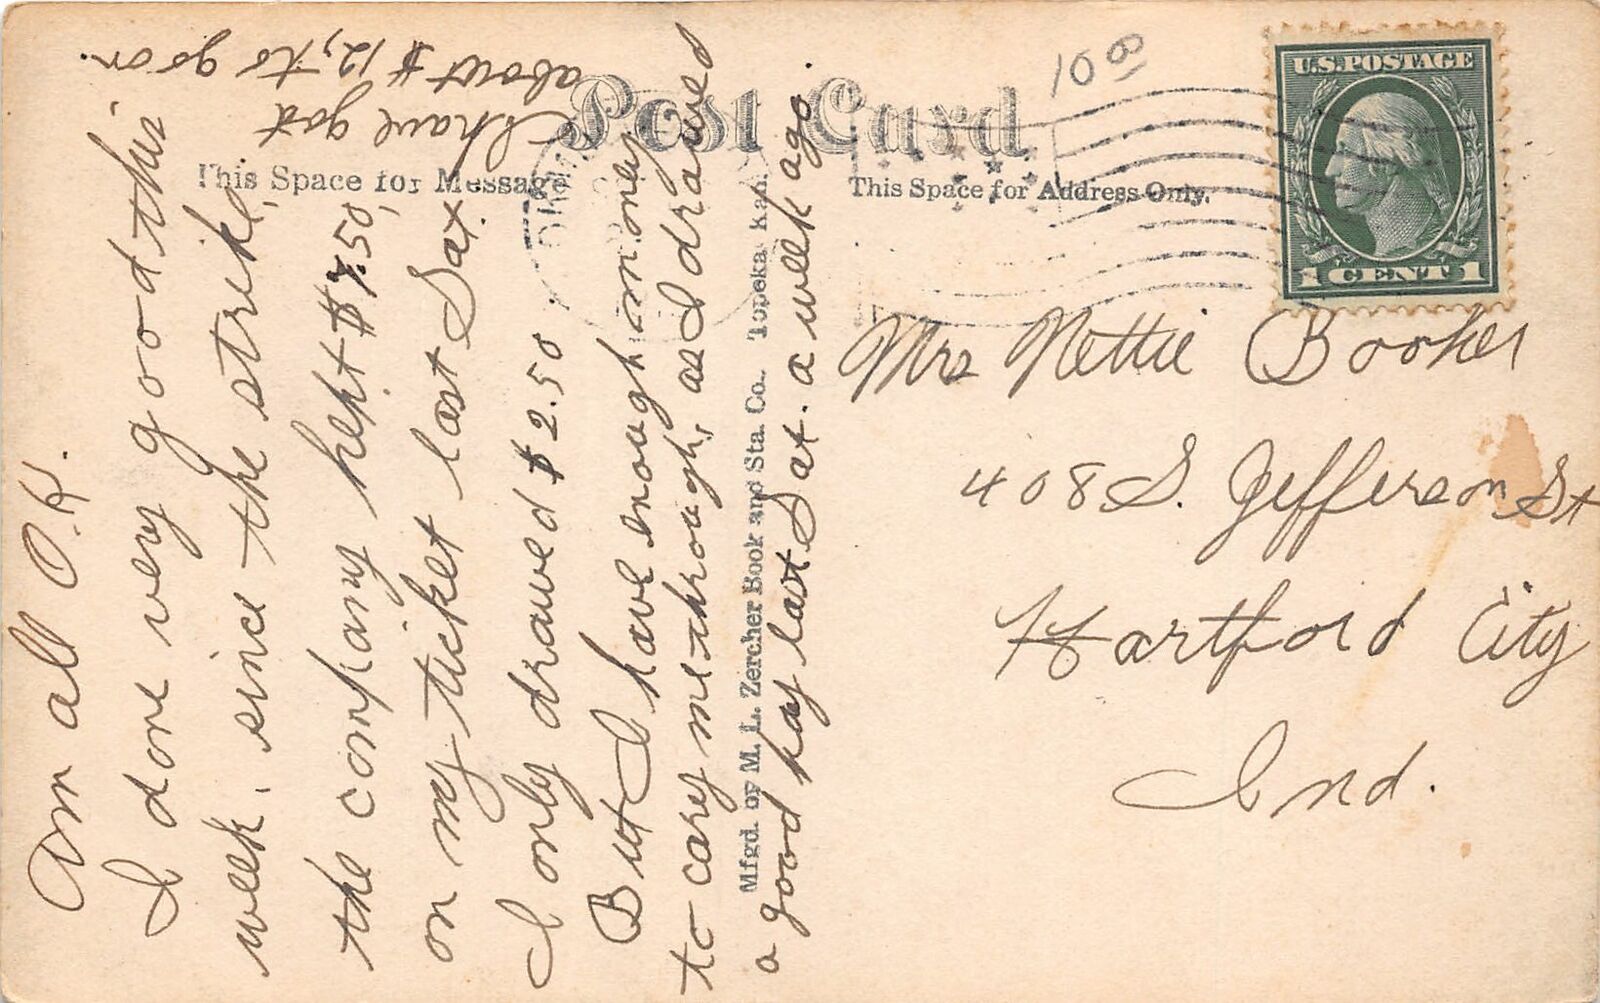 Post Card
This Space for Message
This Space for Address Only.
10 00
U.S. POSTAGE
1 CENT 1
Am all O.K.
I done very good this
week, since the strike,
the company kept $7.50,
on my ticket last Sat.
I only drawed $2.50
But I have enough money
to cary me through, as I drawed
a good pay last Sat. a week ago.
I have got
about $12, to go on.
Mfgd. by M. L. Zercher Book and Sta. Co., Topeka, Kan.
Mrs Nettie Booker
408 S. Jefferson St
Hartford City
Ind.